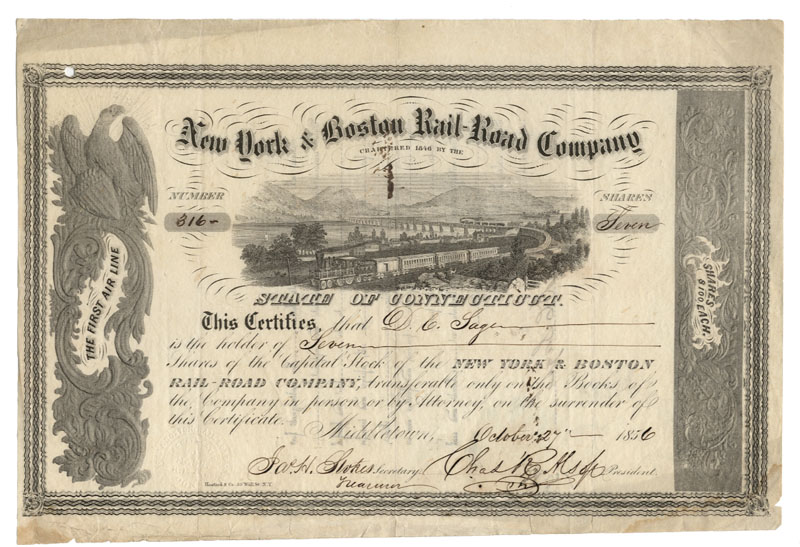 New York & Boston Rail-Road Company
CHARTERED 1846 BY THE
NUMBER
316
SHARES
Seven
STATE OF CONNECTICUT.
THE FIRST AIR LINE
SHARES $100 EACH.
This Certifies, that D. C. Sage
is the holder of Seven
Shares of the Capital Stock of the NEW YORK & BOSTON
RAIL-ROAD COMPANY, transferable only on the Books of
the Company in person or by Attorney, on the surrender of
this Certificate.
Middletown, October 27th 1856
H. Stokes Secretary Chas R. President.
Treasurer